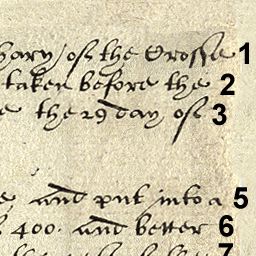 of the Crosse 1
taken before the 2
the 29 day of 3
and put into a 5
400. and better 6
7